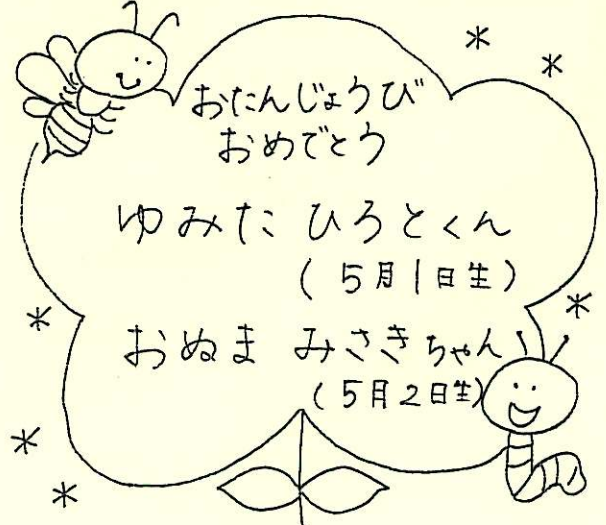 おたんじょうび
おめでとう
ゆみた ひろとくん
(5月1日生)
おぬま みさきちゃん
(5月2日生)